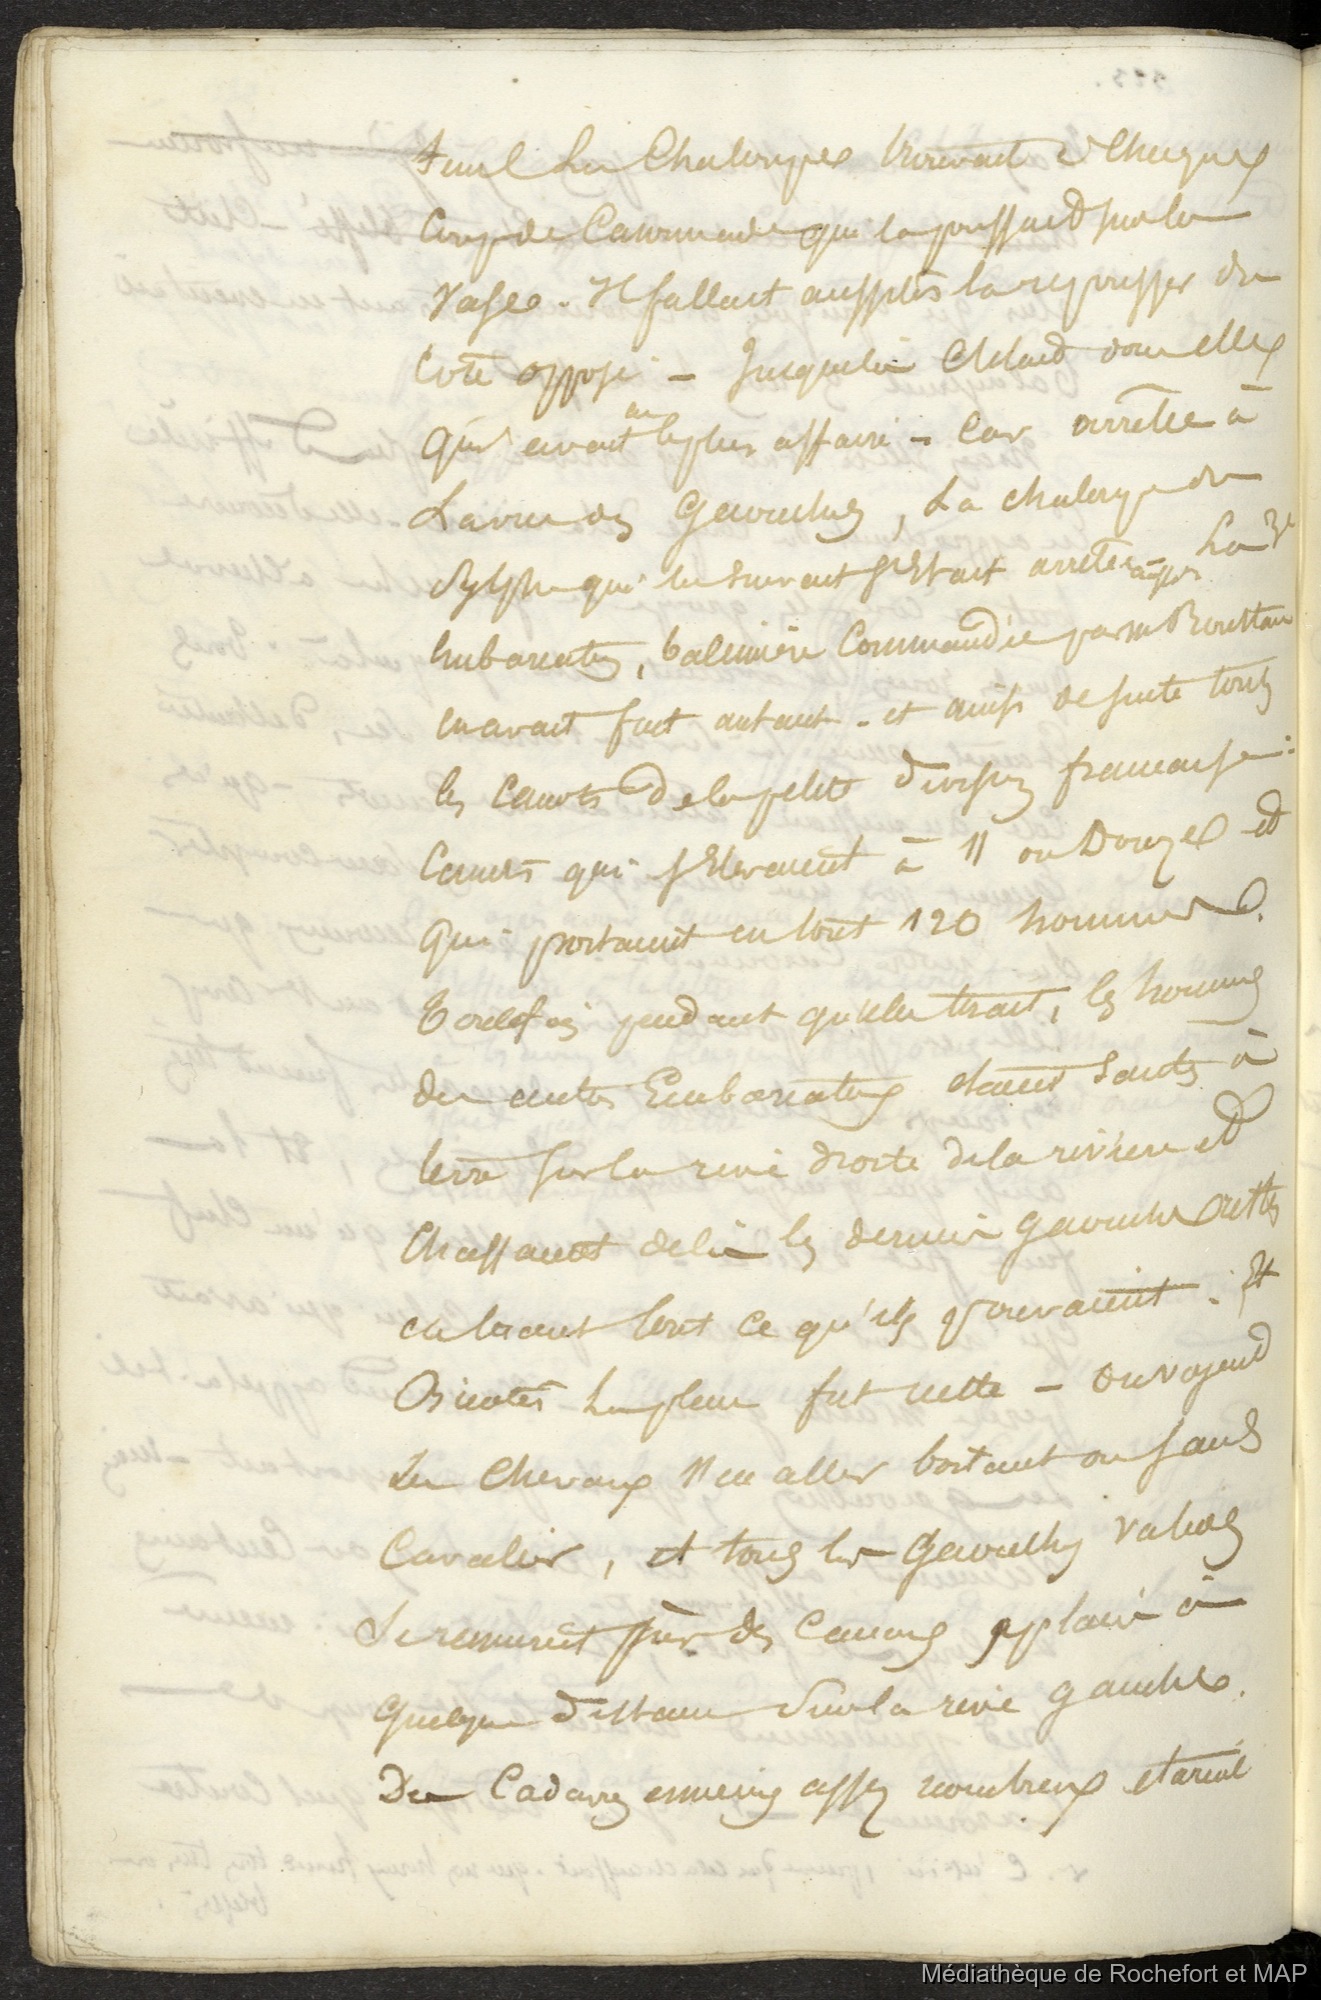 seul la chaloupe viovait à chaque
Coup de Caronnade qui la poussait sur la
vase. Il fallait aussitôt la repousser du
Coté opposé — Jusque là C'était donc elle
qui avait eu le plus affaire — Car arrêtée à
La vue des Gavouches, La chaloupe du
Sylphe qui la suivait s'Etait arretée aussi La 3e
Embarcation, baleinière Commandée par mr Roustan
en avait fait autant — et ainsi de suite tous
les canots de la petite division francaise :
Canots qui s'Elevaient à 11 ou Douze et
qui portaient en tout 120 hommes.
Toutefois pendant qu'elle tirait, les hommes
des autres Embarcations étaient sautés à
terre sur la rive droite de la rivière et
Chassaient de là les derniers gavouches
en tirant tout ce qu'ils trouvaient. Et
Bientôt la place fut nette — On voyait
Les Chevaux s'en aller boitant ou sans
Cavalier, et tous les Gavouches valides
Se reunirent près des Canons placés à
quelque distance Sur la rive gauche.
Des Cadavres ennemis assez nombreux etaient
Médiathèque de Rochefort et MAP